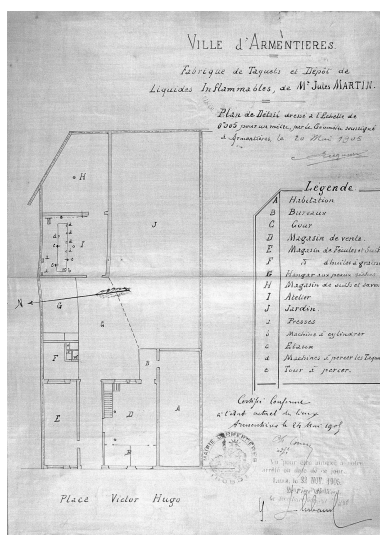 VILLE D'ARMENTIERES.
Fabrique de Taquets et Dépôt de
Liquides Inflammables, de Mr Jules MARTIN.
Plan de Détail dressé à l'Echelle de
0m005 pour un mètre, par le Géomètre soussigné
à Armentières, le 20 Mai 1905
Légende
A Habitation
B Bureaux
C Cour
D Magasin de vente
E Magasin de
F d'huiles à
G Hangar aux peaux
H Magasin de suifs et savon
I Atelier
J Jardin
a Presses
b Machine à cylindrer
c Etaux
d Machines à percer les
e Tour à percer.
Certifié Conforme
à l'état actuel du
Armentières le 14 Mai 1905
MAIRIE D'ARMENTIERES
H
J
I
G
N
C
F
B
E
D
A
B
Place Victor Hugo